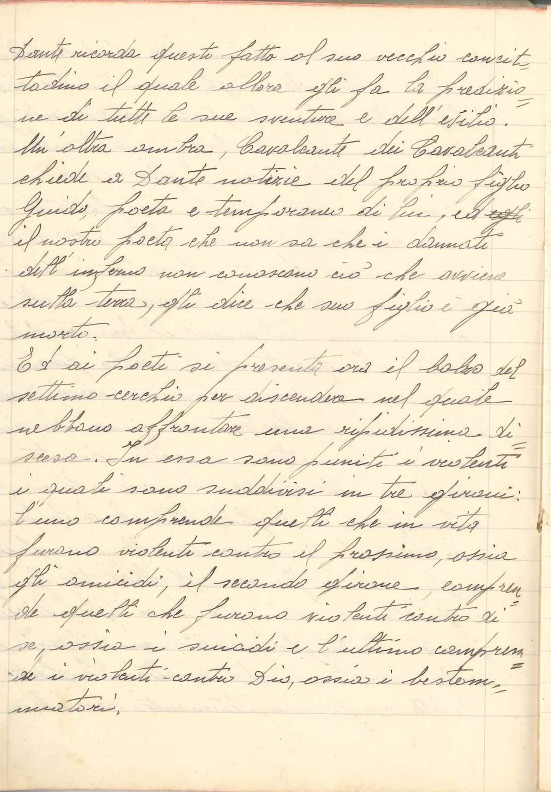 Dante ricorda questo fatto al suo vecchio concit=
tadino il quale allora gli fa la predizio=
ne di tutte le sue sventure e dell'esilio.
Un'altra ombra, Cavalcante dei Cavalcanti
chiede a Dante notizie del proprio figlio
Guido poeta e temporaneo di lui, ed egli
il nostro poeta che non sa che i dannati
dell'inferno non conoscano ciò che avviene
sulla terra, gli dice che suo figlio è già
morto.
Ed ai poeti si presenta ora il balzo del
settimo cerchio per discendere nel quale
debbono affrontare una ripidissima di=
scesa. In essa sono puniti i violenti
i quali sono suddivisi in tre gironi:
l'uno comprende quelli che in vita
furono violenti contro il prossimo, ossia
gli omicidi, il secondo girone, compren=
de quelli che furono violenti contro di
se, ossia i suicidi e l'ultimo compren=
de i violenti contro Dio, ossia i bestem=
miatori.